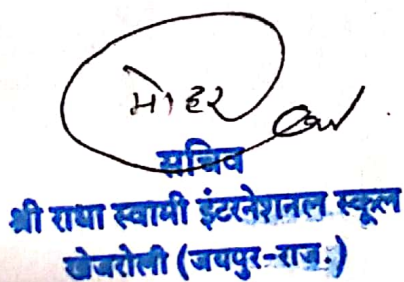 मोहर
सचिव
श्री राधा स्वामी इंटरनेशनल स्कूल
खेजरोली (जयपुर-राज.)